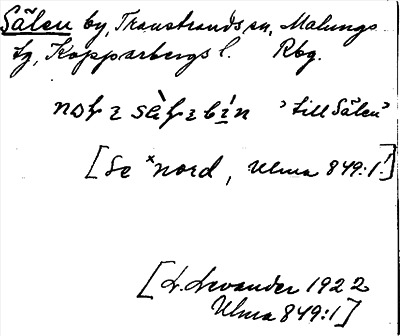 Sälen by, Transtrands sn, Malungs
tg, Kopparbergs l. Rbg.
'till Sälen'
[Se *nord, Ulma 849:1!]
[L. Levander 1922
Ulma 849:1]